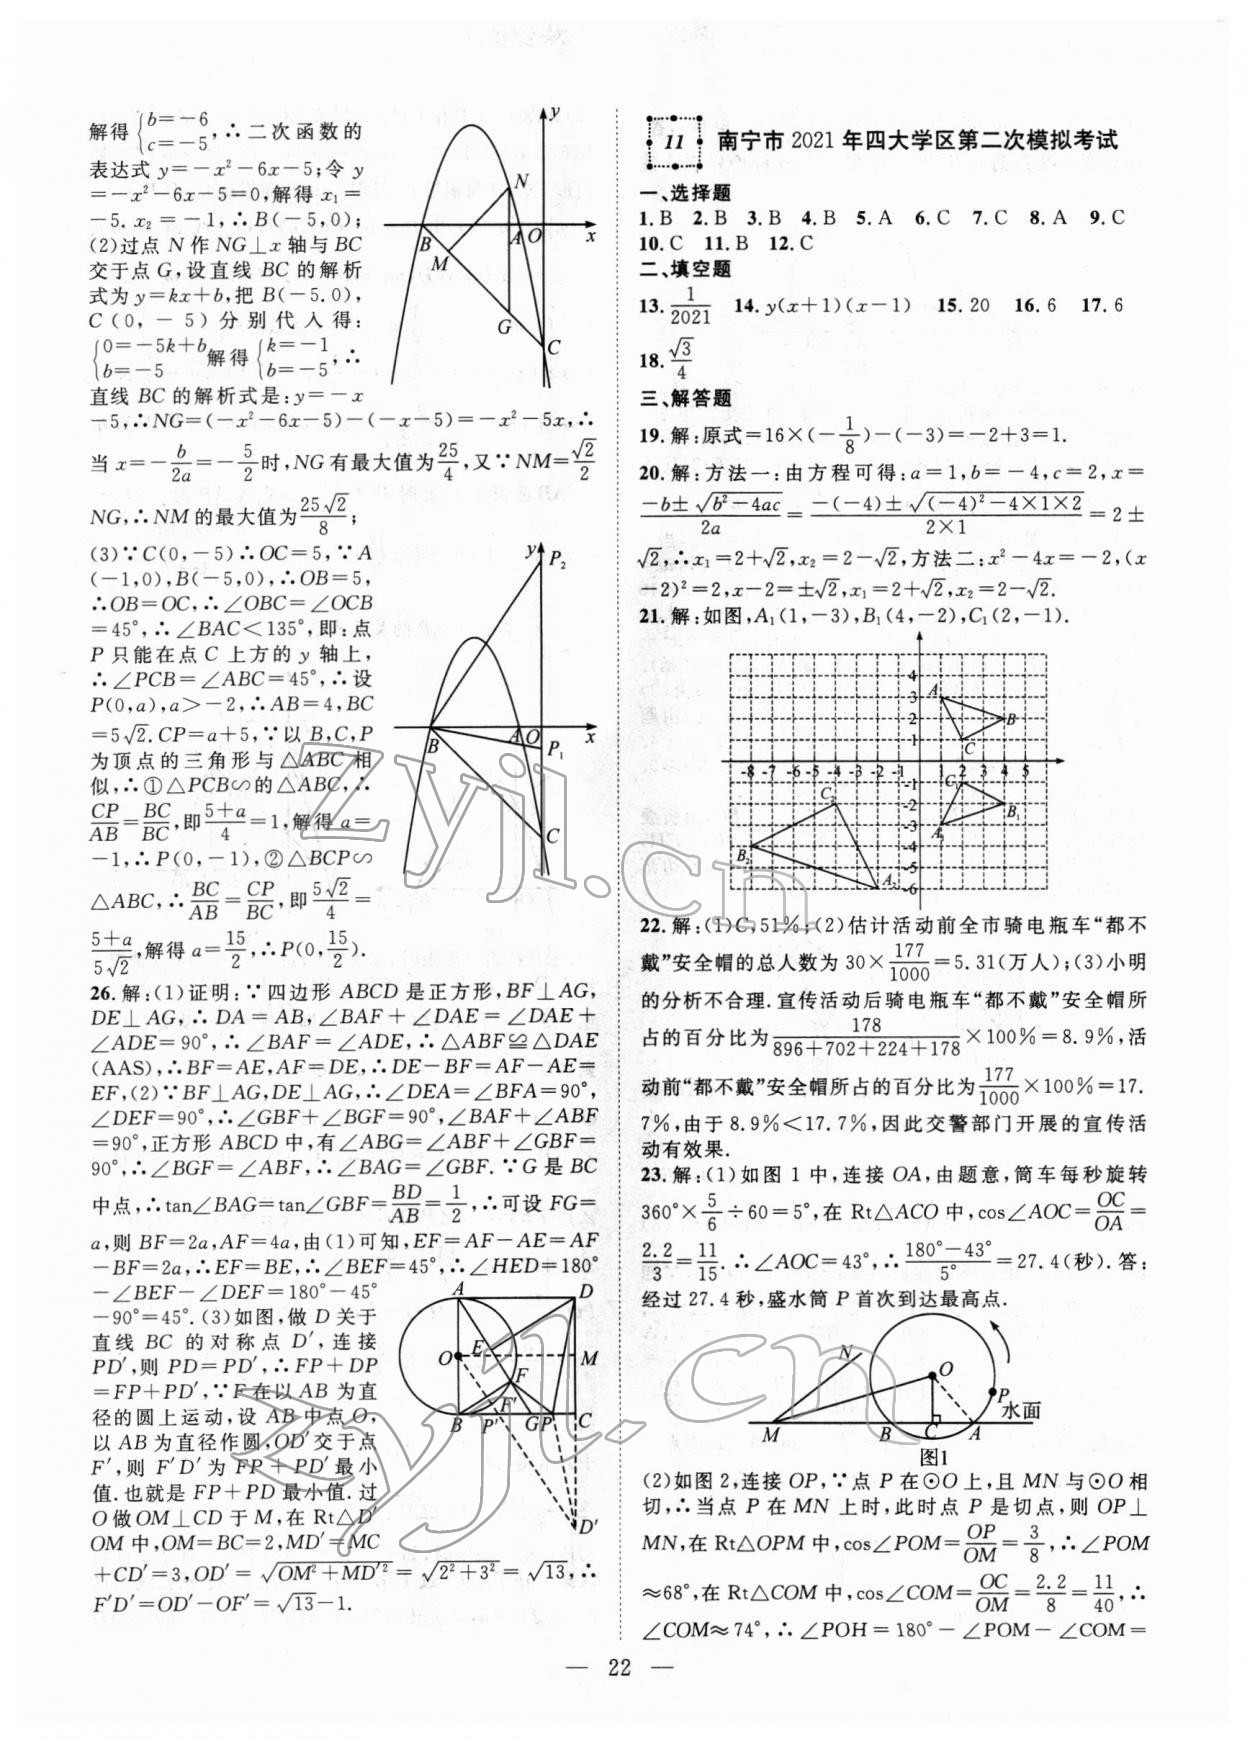 解得{b=-6 c=-5,∴二次函数的
表达式 y=-x²-6x-5;令 y
=-x²-6x-5=0,解得 x₁=
-5. x₂=-1,∴B(-5,0);
(2)过点 N 作 NG⊥x 轴与 BC
交于点 G,设直线 BC 的解析
式为 y=kx+b,把 B(-5.0),
C(0,-5)分别代入得:
{0=-5k+b b=-5 解得{k=-1 b=-5,∴
直线 BC 的解析式是:y=-x
-5,∴NG=(-x²-6x-5)-(-x-5)=-x²-5x,∴
当 x=-b/2a=-5/2时,NG 有最大值为25/4,又∵NM=√2/2
NG,∴NM 的最大值为25√2/8;
(3)∵C(0,-5)∴OC=5,∵A
(-1,0),B(-5,0),∴OB=5,
∴OB=OC,∴∠OBC=∠OCB
=45°,∴∠BAC<135°,即:点
P 只能在点 C 上方的 y 轴上,
∴∠PCB=∠ABC=45°,∴设
P(0,a),a>-2,∴AB=4,BC
=5√2. CP=a+5,∵以 B,C,P
为顶点的三角形与△ABC 相
似,∴①△PCB∽的△ABC,∴
CP/AB=BC/BC,即5+a/4=1,解得 a=
-1,∴P(0,-1),②△BCP∽
△ABC,∴BC/AB=CP/BC,即5√2/4=
5+a/5√2,解得 a=15/2,∴P(0,15/2).
26.解:(1)证明:∵四边形 ABCD 是正方形,BF⊥AG,
DE⊥AG,∴DA=AB,∠BAF+∠DAE=∠DAE+
∠ADE=90°,∴∠BAF=∠ADE,∴△ABF≌△DAE
(AAS),∴BF=AE,AF=DE,∴DE-BF=AF-AE=
EF,(2)∵BF⊥AG,DE⊥AG,∴∠DEA=∠BFA=90°,
∠DEF=90°,∴∠GBF+∠BGF=90°,∠BAF+∠ABF
=90°,正方形 ABCD 中,有∠ABG=∠ABF+∠GBF=
90°,∴∠BGF=∠ABF,∴∠BAG=∠GBF.∵G 是 BC
中点,∴tan∠BAG=tan∠GBF=BD/AB=1/2,∴可设 FG=
a,则 BF=2a,AF=4a,由(1)可知,EF=AF-AE=AF
-BF=2a,∴EF=BE,∴∠BEF=45°,∴∠HED=180°
-∠BEF-∠DEF=180°-45°
-90°=45°.(3)如图,做 D 关于
直线 BC 的对称点 D′,连接
PD′,则 PD=PD′,∴FP+DP
=FP+PD′,∵F 在以 AB 为直
径的圆上运动,设 AB 中点 O,
以 AB 为直径作圆,OD′交于点
F′,则 F′D′为 FP+PD′最小
值.也就是 FP+PD 最小值.过
O 做 OM⊥CD 于 M,在 Rt△D′
OM 中,OM=BC=2,MD′=MC
+CD′=3,OD′=√OM²+MD′²=√2²+3²=√13,∴
F′D′=OD′-OF′=√13-1.
y
N
B
A O
x
M
G
C
y
P₂
B
A O
x
P₁
C
A
D
E
O
M
F
F′
B P′ G P C
D′
11 南宁市 2021 年四大学区第二次模拟考试
一、选择题
1.B 2.B 3.B 4.B 5.A 6.C 7.C 8.A 9.C
10.C 11.B 12.C
二、填空题
13.1/2021 14.y(x+1)(x-1) 15.20 16.6 17.6
18.√3/4
三、解答题
19.解:原式=16×(-1/8)-(-3)=-2+3=1.
20.解:方法一:由方程可得:a=1,b=-4,c=2,x=
-b±√b²-4ac/2a=-(-4)±√(-4)²-4×1×2/2×1=2±
√2,∴x₁=2+√2,x₂=2-√2,方法二:x²-4x=-2,(x
-2)²=2,x-2=±√2,x₁=2+√2,x₂=2-√2.
21.解:如图,A₁(1,-3),B₁(4,-2),C₁(2,-1).
4
3
2
1
A
B
C
-8 -7 -6 -5 -4 -3 -2 -1 1 2 3 4 5
-1
-2
-3
-4
-5
-6
C₁
B₁
A₁
C₂
B₂
A₂
22.解:(1)C,51%;(2)估计活动前全市骑电瓶车“都不
戴”安全帽的总人数为 30×177/1000=5.31(万人);(3)小明
的分析不合理.宣传活动后骑电瓶车“都不戴”安全帽所
占的百分比为178/896+702+224+178×100%=8.9%,活
动前“都不戴”安全帽所占的百分比为177/1000×100%=17.
7%,由于 8.9%<17.7%,因此交警部门开展的宣传活
动有效果.
23.解:(1)如图 1 中,连接 OA,由题意,筒车每秒旋转
360°×5/6÷60=5°,在 Rt△ACO 中,cos∠AOC=OC/OA=
2.2/3=11/15.∴∠AOC=43°,∴180°-43°/5°=27.4(秒).答:
经过 27.4 秒,盛水筒 P 首次到达最高点.
N
O
P
水面
M B C A
图1
(2)如图 2,连接 OP,∵点 P 在⊙O 上,且 MN 与⊙O 相
切,∴当点 P 在 MN 上时,此时点 P 是切点,则 OP⊥
MN,在 Rt△OPM 中,cos∠POM=OP/OM=3/8,∴∠POM
≈68°,在 Rt△COM 中,cos∠COM=OC/OM=2.2/8=11/40,∴
∠COM≈74°,∴∠POH=180°-∠POM-∠COM=
— 22 —
zyjl.cn
zyjl.cn